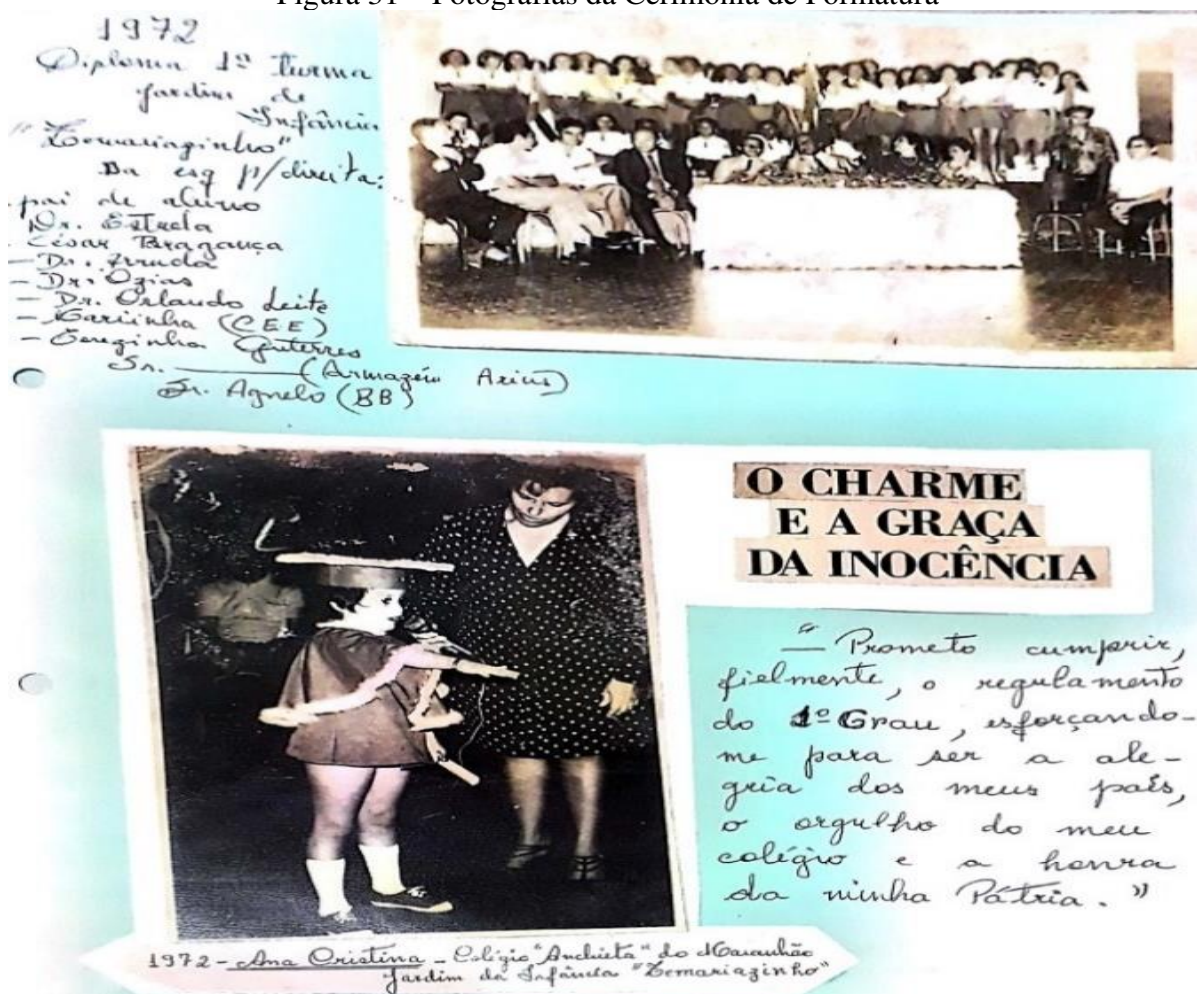 Figura 31 – Fotografias da Cerimônia de Formatura
1972
Diploma 1ª Turma
Jardim de
Infância
"Zemariazinho"
Da esq p/direita:
pai de aluno
Dr. Estrela
- César Bragança
- Dr. Arruda
- Dr. Ozias
- Dr. Orlando Leite
- Mariinha (CEE)
- Terezinha Guterres
Sr. ______ (Armazém
Sr. Agnelo (BB)
O CHARME
E A GRAÇA
DA INOCÊNCIA
"– Prometo cumprir,
fielmente, o regulamento
do 1º Grau, esforçando-
me para ser a ale-
gria dos meus pais,
o orgulho do meu
colégio e a honra
da minha Pátria."
1972 - Ana Cristina - Colégio "Anchieta" do Maranhão
Jardim da Infância "Zemariazinho"